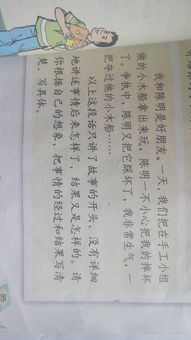 我和陈明是好朋友。一天，我们把在手工小组
做的小木船拿出来玩。陈明一不小心把我的摔坏
了。争执中，陈明又把它踩坏了，我非常生气，一
把夺过他的小木船……
以上这段话只讲了故事的开头，没有详细
地讲述事情后来怎样了，结果又是怎样的。请
你根据自己的想象，把事情的经过和结果写清
楚，写具体。
95